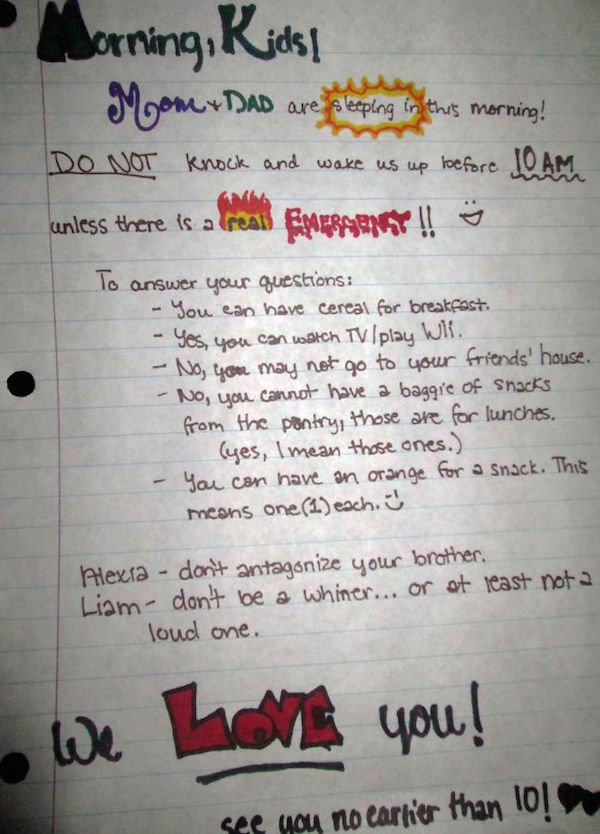 Morning, Kids!
Mom + DAD are sleeping in this morning!
DO NOT knock and wake us up before 10 AM
unless there is a real EMERGENCY!!
To answer your questions:
- You can have cereal for breakfast.
- Yes, you can watch TV/play Wii.
- No, you may not go to your friends' house.
- No, you cannot have a baggie of snacks
from the pantry, those are for lunches.
(yes, I mean those ones.)
- You can have an orange for a snack. This
means one(1) each.
Alexia - don't antagonize your brother.
Liam - don't be a whiner... or at least not a
loud one.
We LOVE you!
see you no earlier than 10!